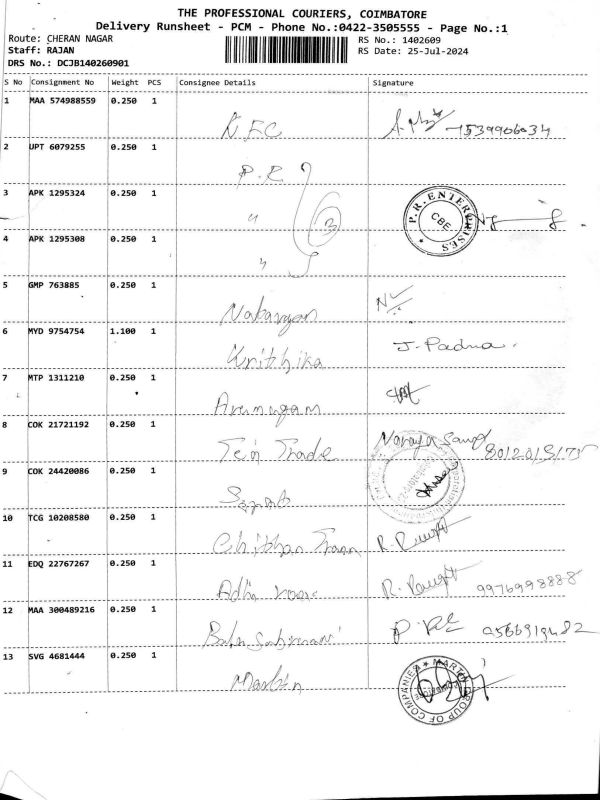 THE PROFESSIONAL COURIERS, COIMBATORE
Delivery Runsheet - PCM - Phone No.:0422-3505555 - Page No.:1
Route: CHERAN NAGAR RS No.: 1402609
Staff: RAJAN RS Date: 25-Jul-2024
DRS No.: DCJB140260901
S No Consignment No Weight PCS Consignee Details Signature
1 MAA 574988559 0.250 1
2 UPT 6079255 0.250 1 P.R
3 APK 1295324 0.250 1 " 3 P.R.ENTERPRISES CBE
4 APK 1295308 0.250 1 "
5 GMP 763885 0.250 1
6 MYD 9754754 1.100 1 Krithika J. Padma
7 MTP 1311210 0.250 1 Arumugam
8 COK 21721192 0.250 1
9 COK 24420086 0.250 1
10 TCG 10208580 0.250 1
11 EDQ 22767267 0.250 1 9976998888
12 MAA 300489216 0.250 1
13 SVG 4681444 0.250 1 Martin MARTIN GROUP OF COMPANIES